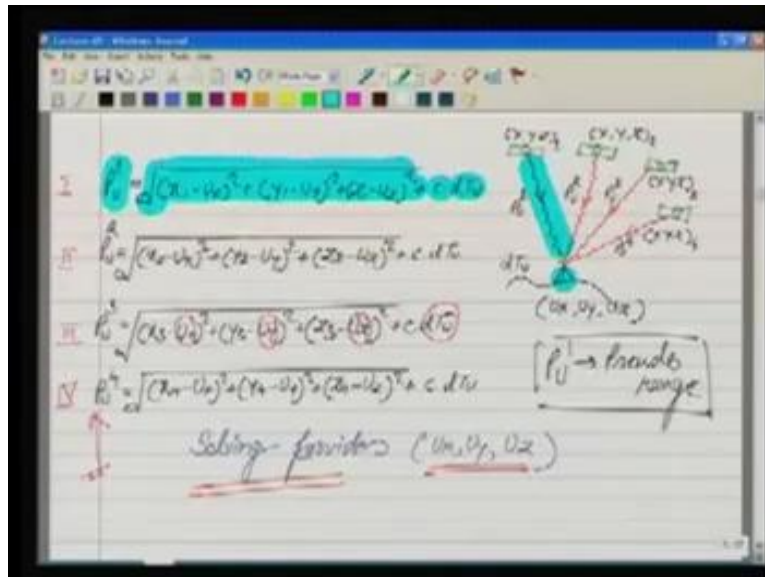 Lecture-05 - Windows Journal
I P_U^1 = √(x₁-Ux)²+(y₁-Uy)²+(z₁-Uz)² + c dTu
II P_U^2 = √(x₂-Ux)²+(y₂-Uy)²+(z₂-Uz)² + c.dTu
III P_U^3 = √(x₃-Ux)²+(y₃-Uy)²+(z₃-Uz)² + c.dTu
IV P_U^4 = √(x₄-Ux)²+(y₄-Uy)²+(z₄-Uz)² + c.dTu
Solving provides (Ux, Uy, Uz)
dTu
(Ux, Uy, Uz)
P_U^1 → Pseudo
range